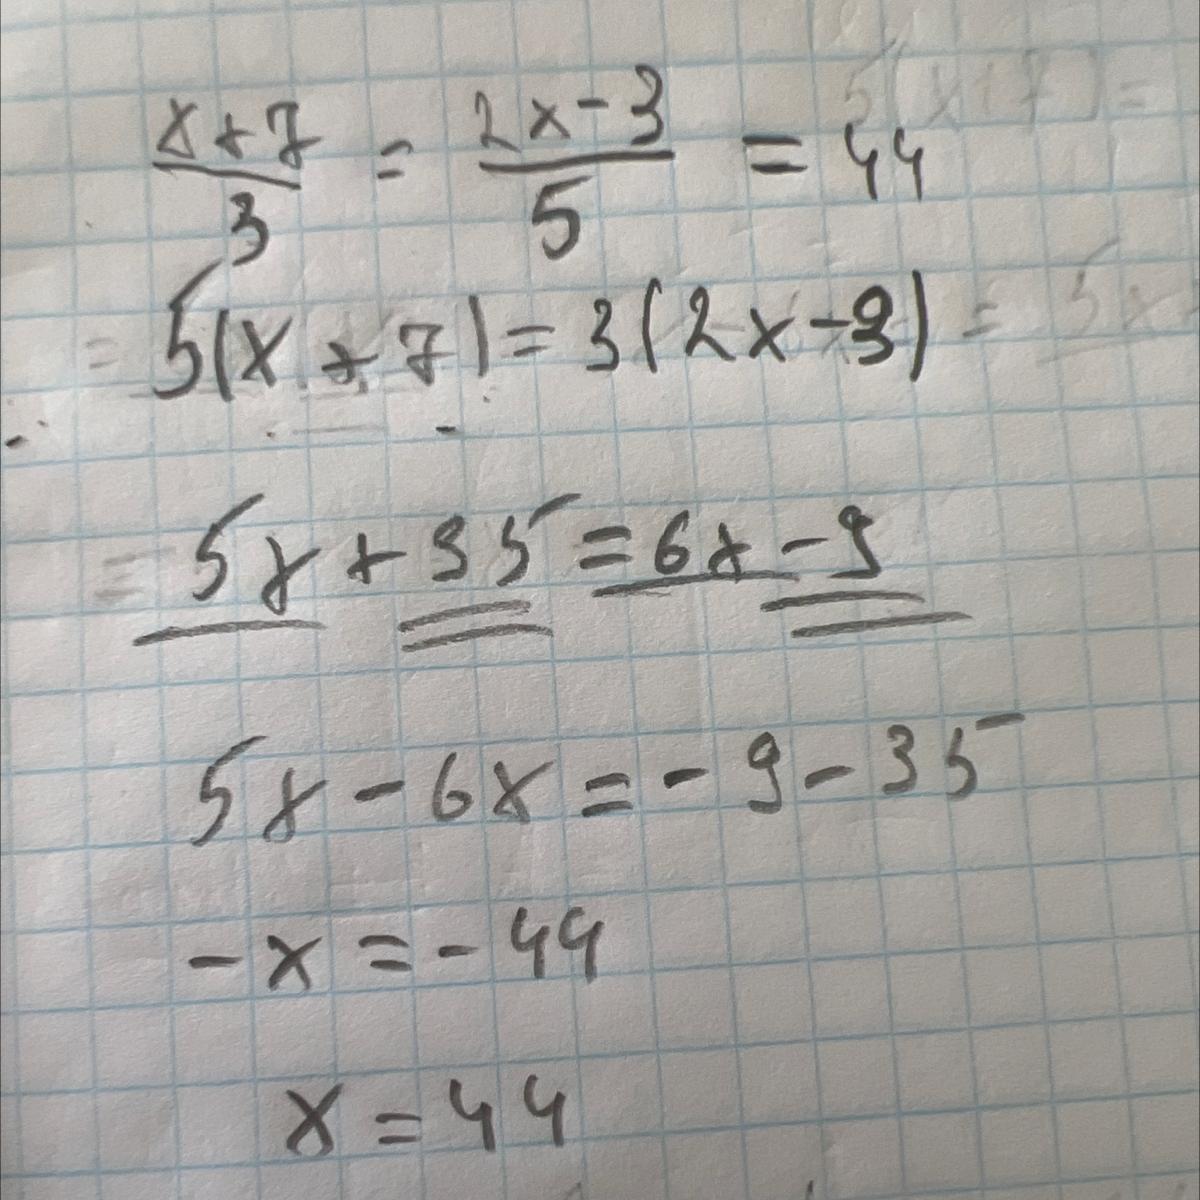 x+7/3 = 2x-3/5 = 44
5(x+7)=3(2x-3)
5x+35=6x-9
5x-6x=-9-35
-x=-44
x=44